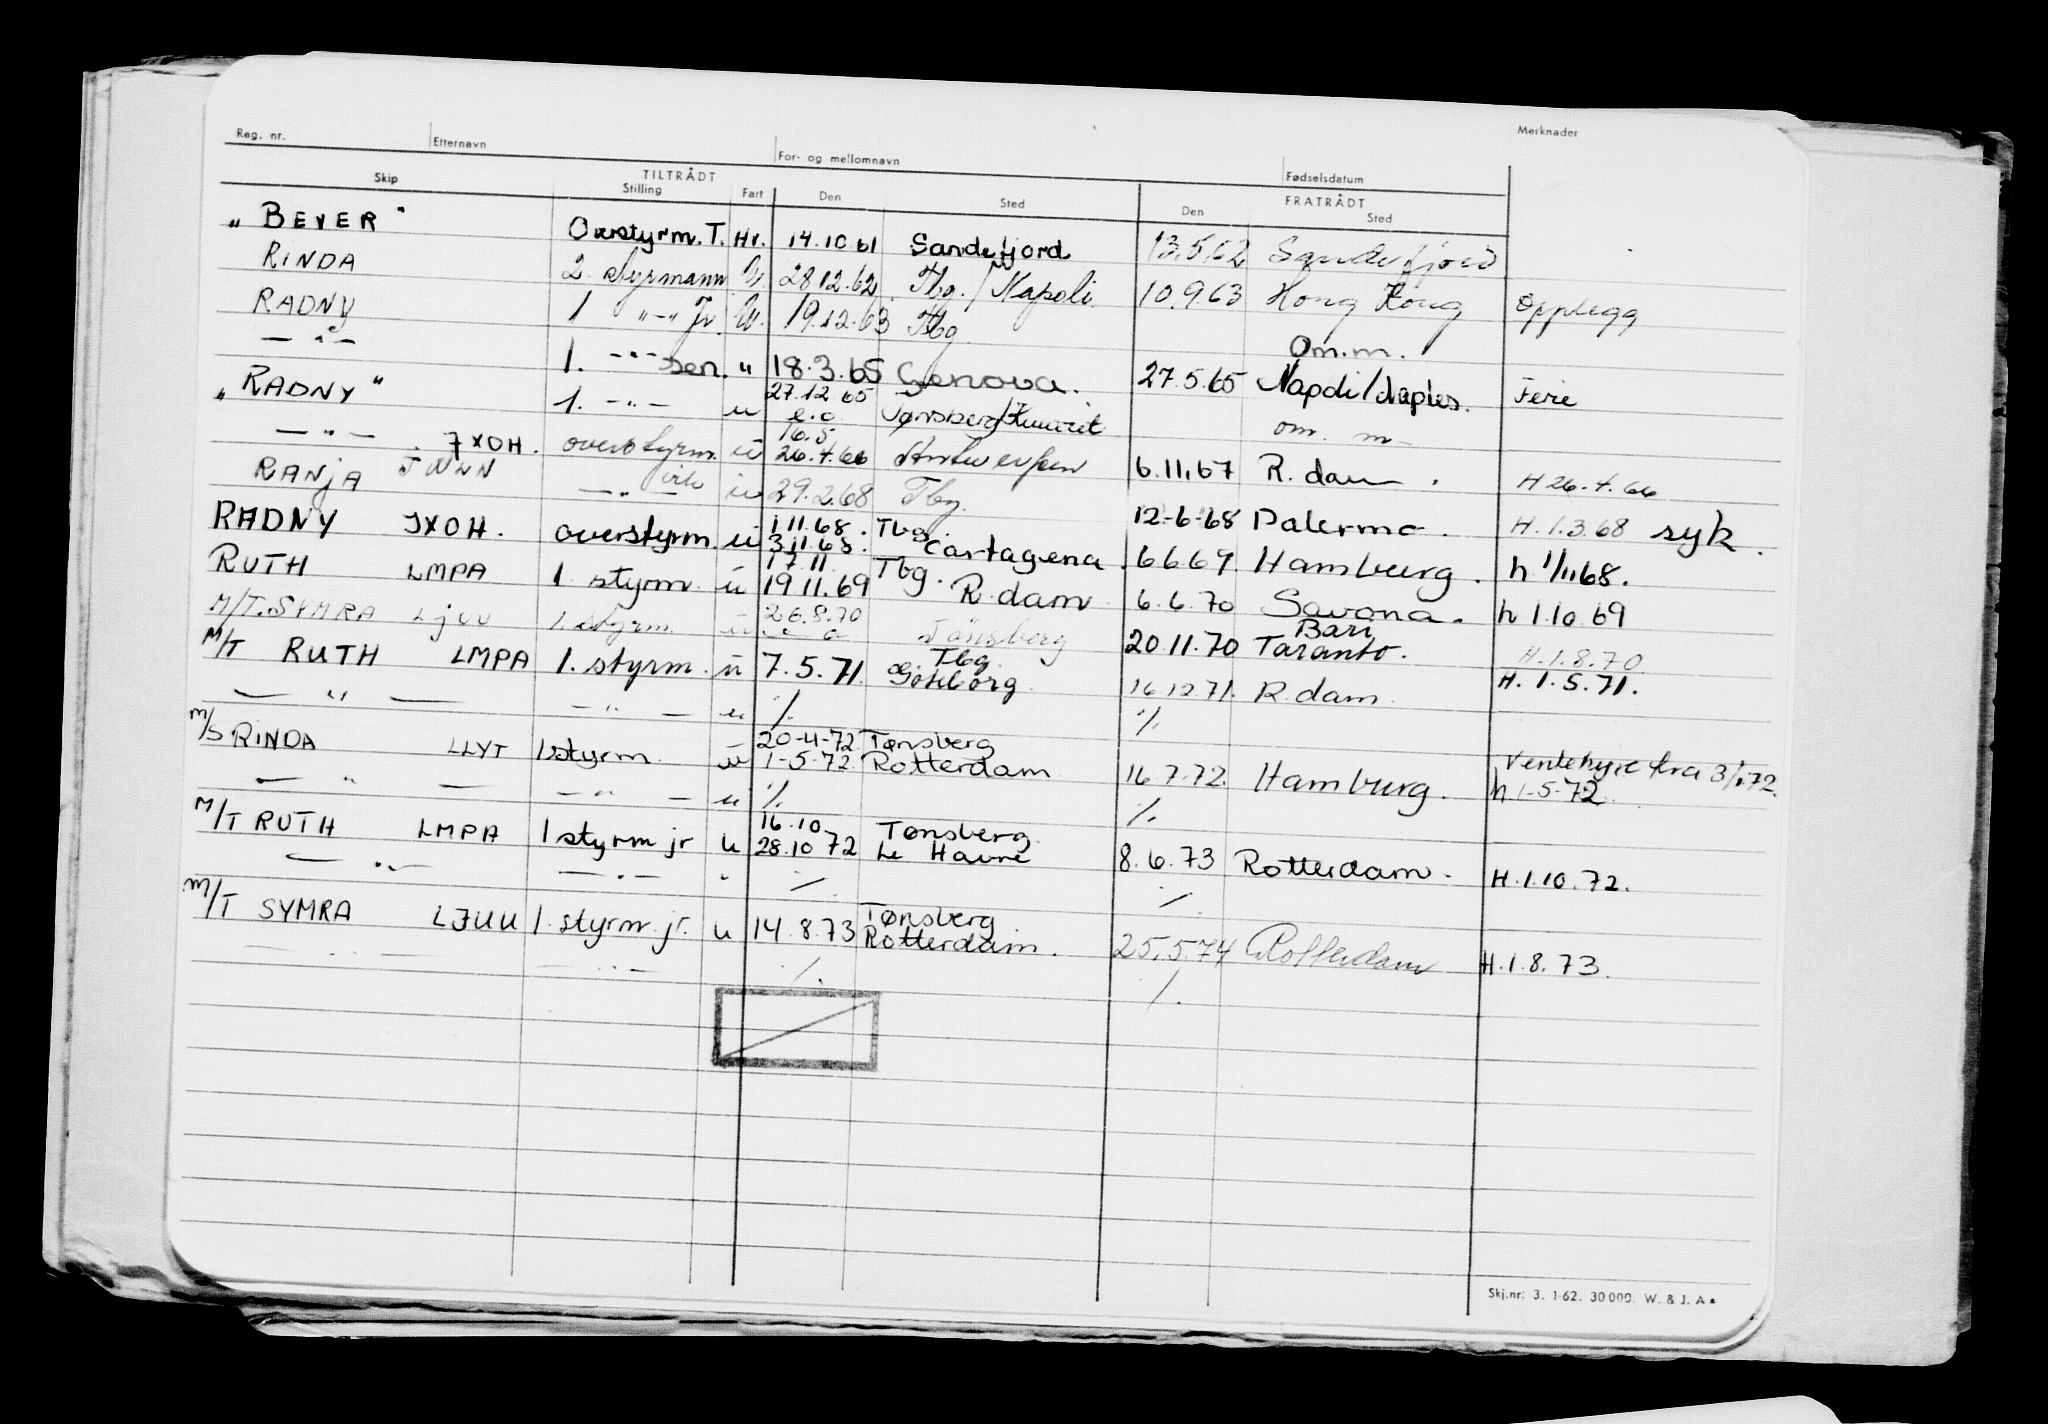 Reg. nr. Etternavn For- og mellomnavn Fødselsdatum Merknader
Skip TILTRÅDT Stilling Fart Den Sted Den FRATRÅDT Sted
„ BEVER " Overstyrm. T. Hv. 14.10 61 Sandefjord 13.5.62 Sandefjord
RINDA 2. styrmann U. 28 12.62 Tbg. / Napoli 10.9.63 Hong Kong Opplegg
RADNY 1 -"- Jr. U. 19.12.63 Tbg. Om.m.
- " - 1. -"- sen. " 18.3.65 Genova. 27.5.65 Napoli/Naples. Ferie
„ RADNY " 1. -"- u 27.12 65 e.o. Tønsberg/ om. m-
- " - JXOH. overstyrm. u 16.5 26.4.66 Antwerpen 6.11.67 R. dam. H 26.4.66
RANJA -"- u 29.2.68 Tbg. 12-6-68 Palermo. H.1.3.68 syk.
RADNY JXOH. overstyrm. u 1 11.68. Tbg. 3.11.68. Cartagena. 6 6 69 Hamburg. h 1/11 68.
RUTH LMPA 1. styrm. u 17.11 19 11.69 Tbg. R.dam 6.6.70 Savona. h 1.10 69
M/T. SYMRA LJUU 1. styrm. u 26.8.70 Tönsberg 20.11.70 Bari Taranto. H.1.8.70
M/T RUTH LMPA 1. styrm. u 7.5.71. Tbg. Göteborg 16 12.71. R.dam. H. 1.5.71.
- " - - " - u % %
M/S RINDA LLYT 1 styrm. u 20-4-72 Tønsberg 1-5-72 Rotterdam 16 7.72. Hamburg. Ventehyre fra 3/4 72. h 1-5-72.
- " - - " - u % %
M/T RUTH LMPA 1 styrm jr u 16.10 28.10 72 Tønsberg. Le Havre 8.6.73 Rotterdam. H.1.10.72.
- " - - " - " % %
M/T SYMRA LJUU 1. styrm. jr. u 14.8.73 Tønsberg Rotterdam. 25.5.74 Rotterdam H.1.8.73.
- " - - " - % %
Skj.nr: 3. 1-62. 30 000. W. & J. A